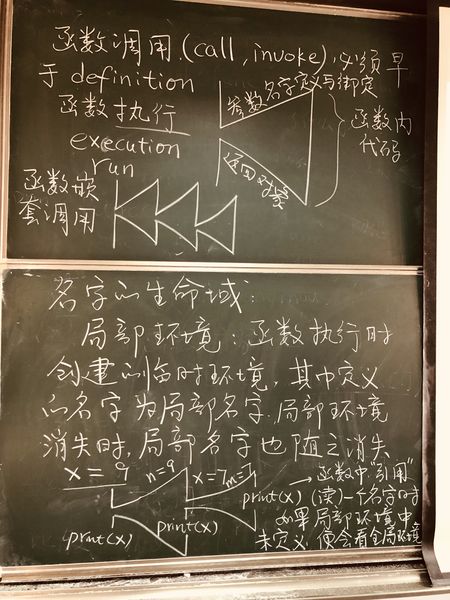 函数调用(call, invoke),必须早
于 definition
函数执行
execution
run
参数名字定义与绑定
返回对象
函数内
代码
函数嵌
套调用
名字的生命域:
局部环境:函数执行时
创建的临时环境,其中定义
的名字为局部名字.局部环境
消失时,局部名字也随之消失
x = 9
n=9
x=7
m=7
print(x)
print(x)
print(x)
→函数中"引用"
(读)一个名字时
如果局部环境中
未定义,便会看全局环境